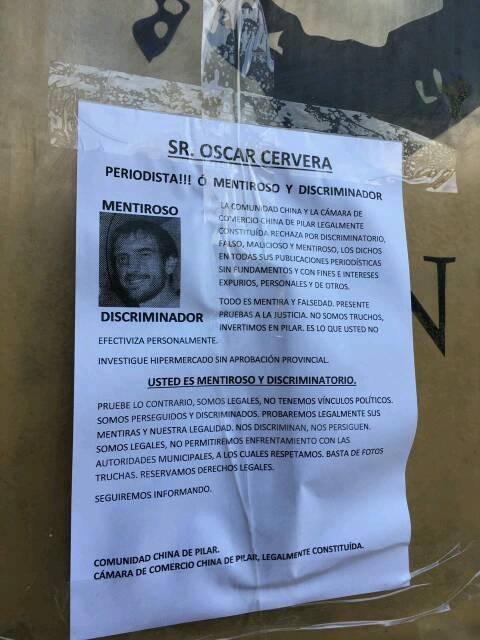 SR. OSCAR CERVERA
PERIODISTA!!! Ó MENTIROSO Y DISCRIMINADOR
MENTIROSO
DISCRIMINADOR
LA COMUNIDAD CHINA Y LA CÁMARA DE
COMERCIO CHINA DE PILAR LEGALMENTE
CONSTITUÍDA RECHAZA POR DISCRIMINATORIO,
FALSO, MALICIOSO Y MENTIROSO, LOS DICHOS
EN TODAS SUS PUBLICACIONES PERIODÍSTICAS
SIN FUNDAMENTOS Y CON FINES E INTERESES
EXPURIOS, PERSONALES Y DE OTROS.
TODO ES MENTIRA Y FALSEDAD. PRESENTE
PRUEBAS A LA JUSTICIA. NO SOMOS TRUCHOS,
INVERTIMOS EN PILAR. ES LO QUE USTED NO
EFECTIVIZA PERSONALMENTE.
INVESTIGUE HIPERMERCADO SIN APROBACIÓN PROVINCIAL.
USTED ES MENTIROSO Y DISCRIMINATORIO.
PRUEBE LO CONTRARIO, SOMOS LEGALES, NO TENEMOS VÍNCULOS POLÍTICOS.
SOMOS PERSEGUIDOS Y DISCRIMINADOS. PROBAREMOS LEGALMENTE SUS
MENTIRAS Y NUESTRA LEGALIDAD. NOS DISCRIMINAN, NOS PERSIGUEN.
SOMOS LEGALES, NO PERMITIREMOS ENFRENTAMIENTO CON LAS
AUTORIDADES MUNICIPALES, A LOS CUALES RESPETAMOS. BASTA DE FOTOS
TRUCHAS. RESERVAMOS DERECHOS LEGALES.
SEGUIREMOS INFORMANDO.
COMUNIDAD CHINA DE PILAR.
CÁMARA DE COMERCIO CHINA DE PILAR, LEGALMENTE CONSTITUÍDA.
N